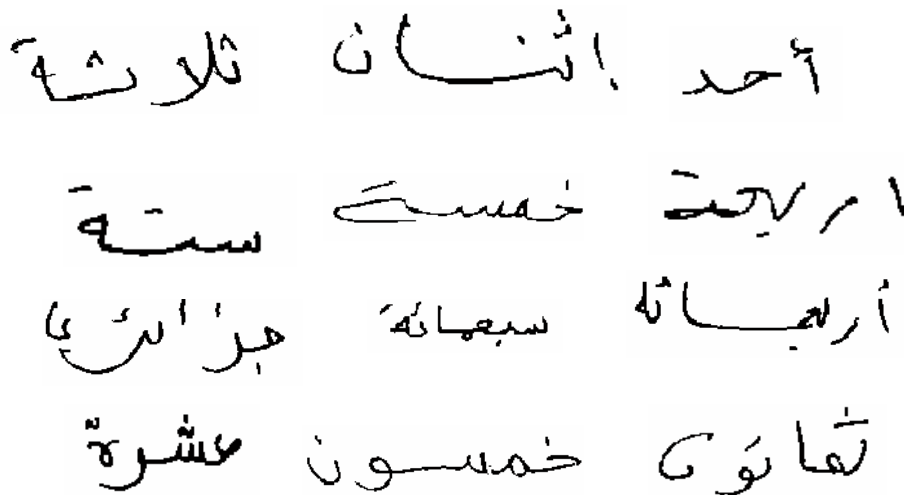 أحد اثنان ثلاثة
اربعة خمسة ستة
أربعمائة سبعمائة جزائري
ثمانون خمسون عشرة